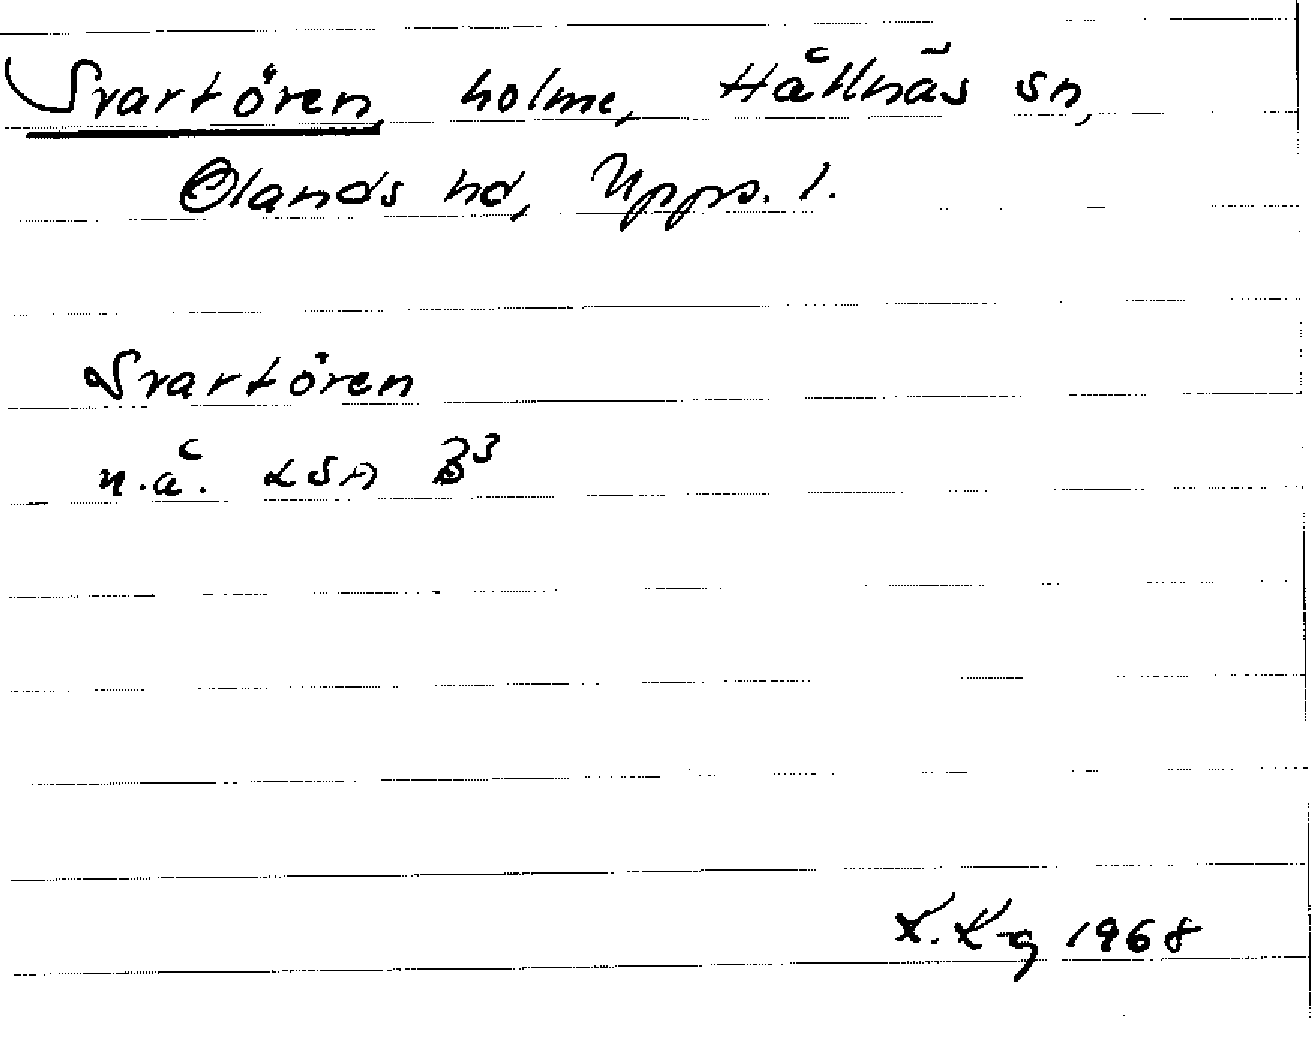 Svartören, holme, Hållnäs sn,
Olands hd, Upps. l.
Svartören
n.å. LSA B³
K. K-g 1968